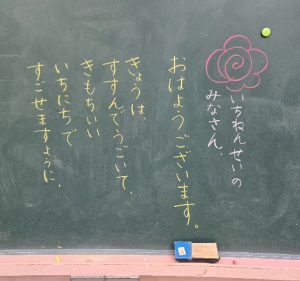 いちねんせいの
みなさん、
おはようございます。
きょうは、
すすんでうごいて、
きもちいい
いちにちで
すごせますように、